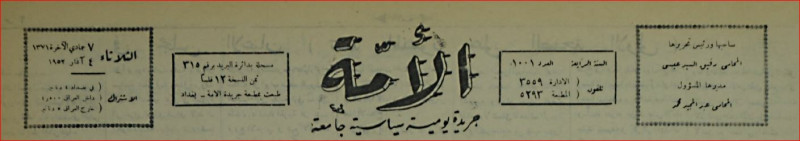 صاحبها ورئيس تحريرها
المحامي رفيق السيد عيسى
مديرها المسؤول
المحامي عبد المجيد محمد
السنة الرابعة العدد ١٠٠١
تلفون ( الادارة ٣٥٥٩
( المطبعة ٥٢٩٣
الأمّة
جريدة يومية سياسية جامعة
مسجلة بدائرة البريد برقم ٣١٥
ثمن النسخة ١٢ فلساً
طبعت بمطبعة جريدة الامة - بغداد
الثلاثاء
٧ جمادي الآخرة ١٣٧١
٤ آذار ١٩٥٢
الاشتراك
في بغداد
داخل العراق
خارج العراق